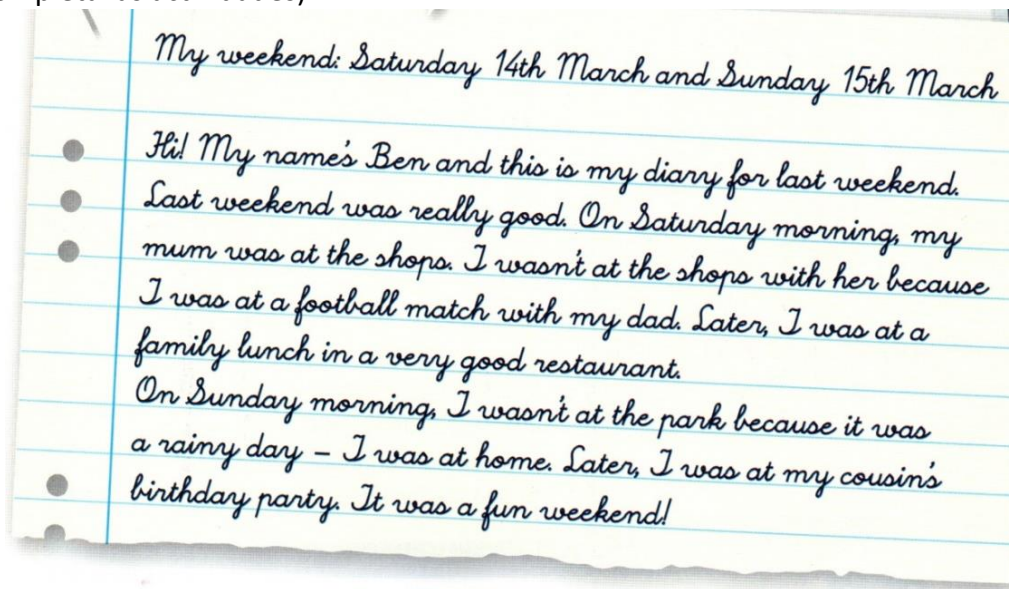 My weekend: Saturday 14th March and Sunday 15th March
Hi! My name's Ben and this is my diary for last weekend.
Last weekend was really good. On Saturday morning, my
mum was at the shops. I wasn't at the shops with her because
I was at a football match with my dad. Later, I was at a
family lunch in a very good restaurant.
On Sunday morning, I wasn't at the park because it was
a rainy day – I was at home. Later, I was at my cousin's
birthday party. It was a fun weekend!